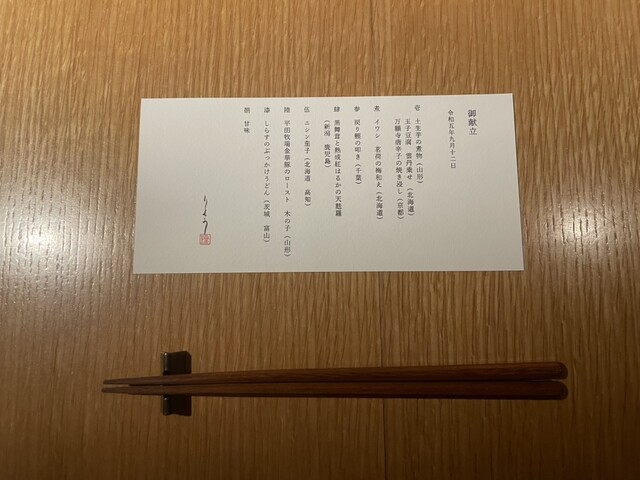 御献立
令和五年九月十二日
壱 土生芋の煮物（山形）
玉子豆腐 雲丹乗せ（北海道）
万願寺唐辛子の焼き浸し（京都）
煮 イワシ 茗荷の梅和え（北海道）
参 戻り鰹の叩き（千葉）
肆 黒舞茸と熟成紅はるかの天麩羅
（新潟 鹿児島）
伍 ニシン茄子（北海道 高知）
陸 平田牧場金華豚のロースト 木の子（山形）
漆 しらすのぶっかけうどん（茨城 富山）
捌 甘味
りょう